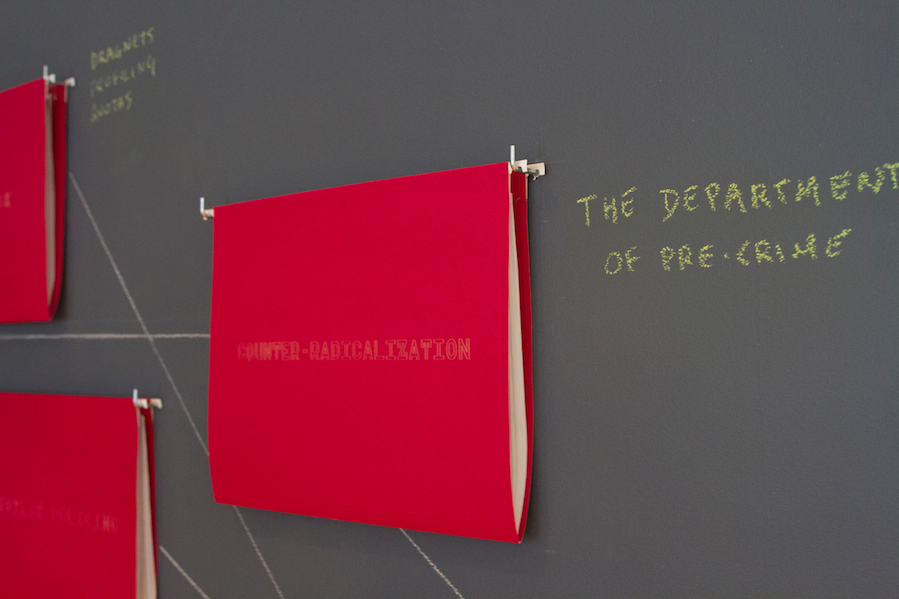 DRAGNETS
PROFILING
QUOTAS
THE DEPARTMENT
OF PRE-CRIME
COUNTER-RADICALIZATION